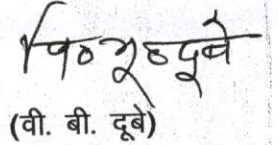 वि० भू० दूबे
(वी. बी. दूबे)